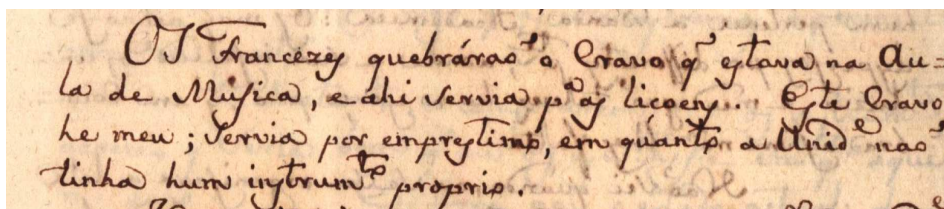 Os Francezes quebrárão o Cravo q̃ estava na Au=
la de Musica, e ahi servia pª as liçoens. Este Cravo
he meu; servia por emprestimo, em quánto a Unidᵉ não
tinha hum instrumᵗᵒ proprio.